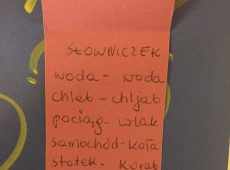 SŁOWNICZEK
woda - woda
chleb - chljab
pociąg - wlak
samochód - koła
statek - korab